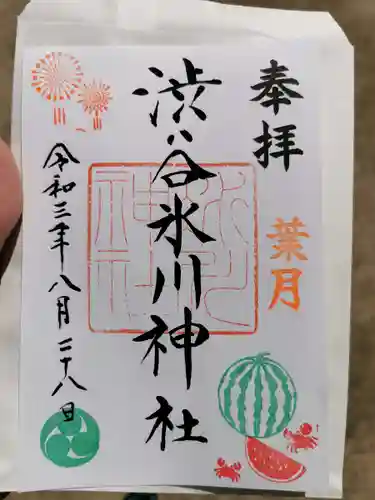 奉拝
葉月
渋谷氷川神社
令和三年八月二十八日
氷川
神社